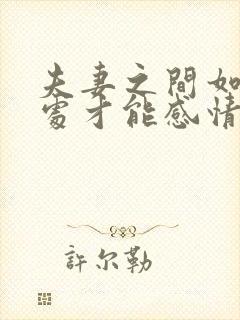 夫妻之間如
處才能感情
許尔勒